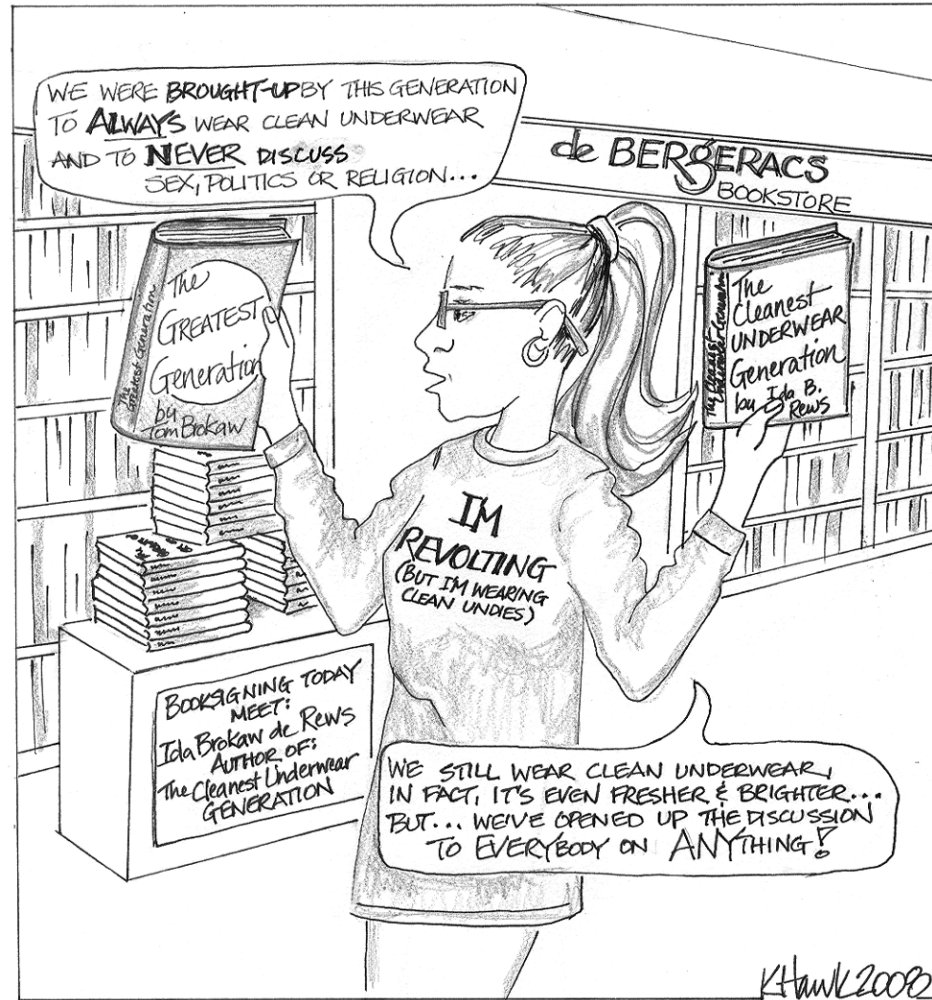 WE WERE BROUGHT-UP BY THIS GENERATION
TO ALWAYS WEAR CLEAN UNDERWEAR
AND TO NEVER DISCUSS
SEX, POLITICS OR RELIGION...
de BERgERACS
BOOKSTORE
The
GREATEST
Generation
by
Tom Brokaw
The
Greatest Generation
The
Cleanest
UNDERWEAR
Generation
by Ida B.
Rews
The Cleanest
Underwear Generation
I'M
REVOLTING
(BUT I'M WEARING
CLEAN UNDIES)
BOOKSIGNING TODAY
MEET:
Ida Brokaw de Rews
AUTHOR OF:
The Cleanest Underwear
GENERATION
WE STILL WEAR CLEAN UNDERWEAR,
IN FACT, IT'S EVEN FRESHER & BRIGHTER...
BUT... WE'VE OPENED UP THE DISCUSSION
TO EVERYBODY ON ANYTHING!
KHawk 2008